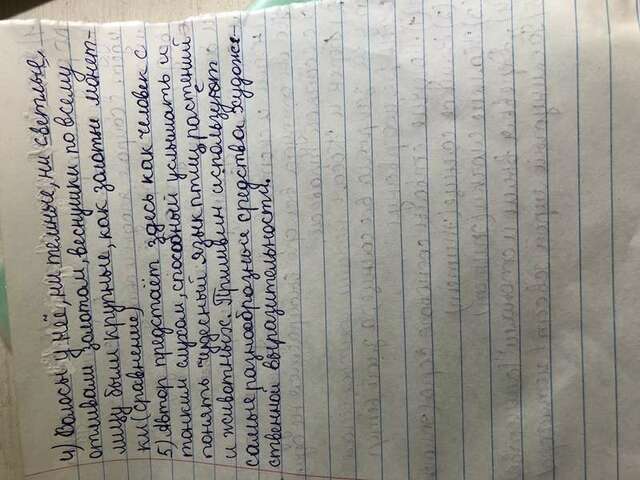 4) Волосы у неё, ни тёмные, ни светлые,
отливали золотом, веснушки по всему
лицу были крупные, как золотые монет-
ки (Сравнение)
5) Автор предстаёт здесь как человек с
тонким слухом, способный услышать и
понять чудесный язык птиц, растений
и животных. Пришвин используют
самые разнообразные средства художе-
ственной выразительности.